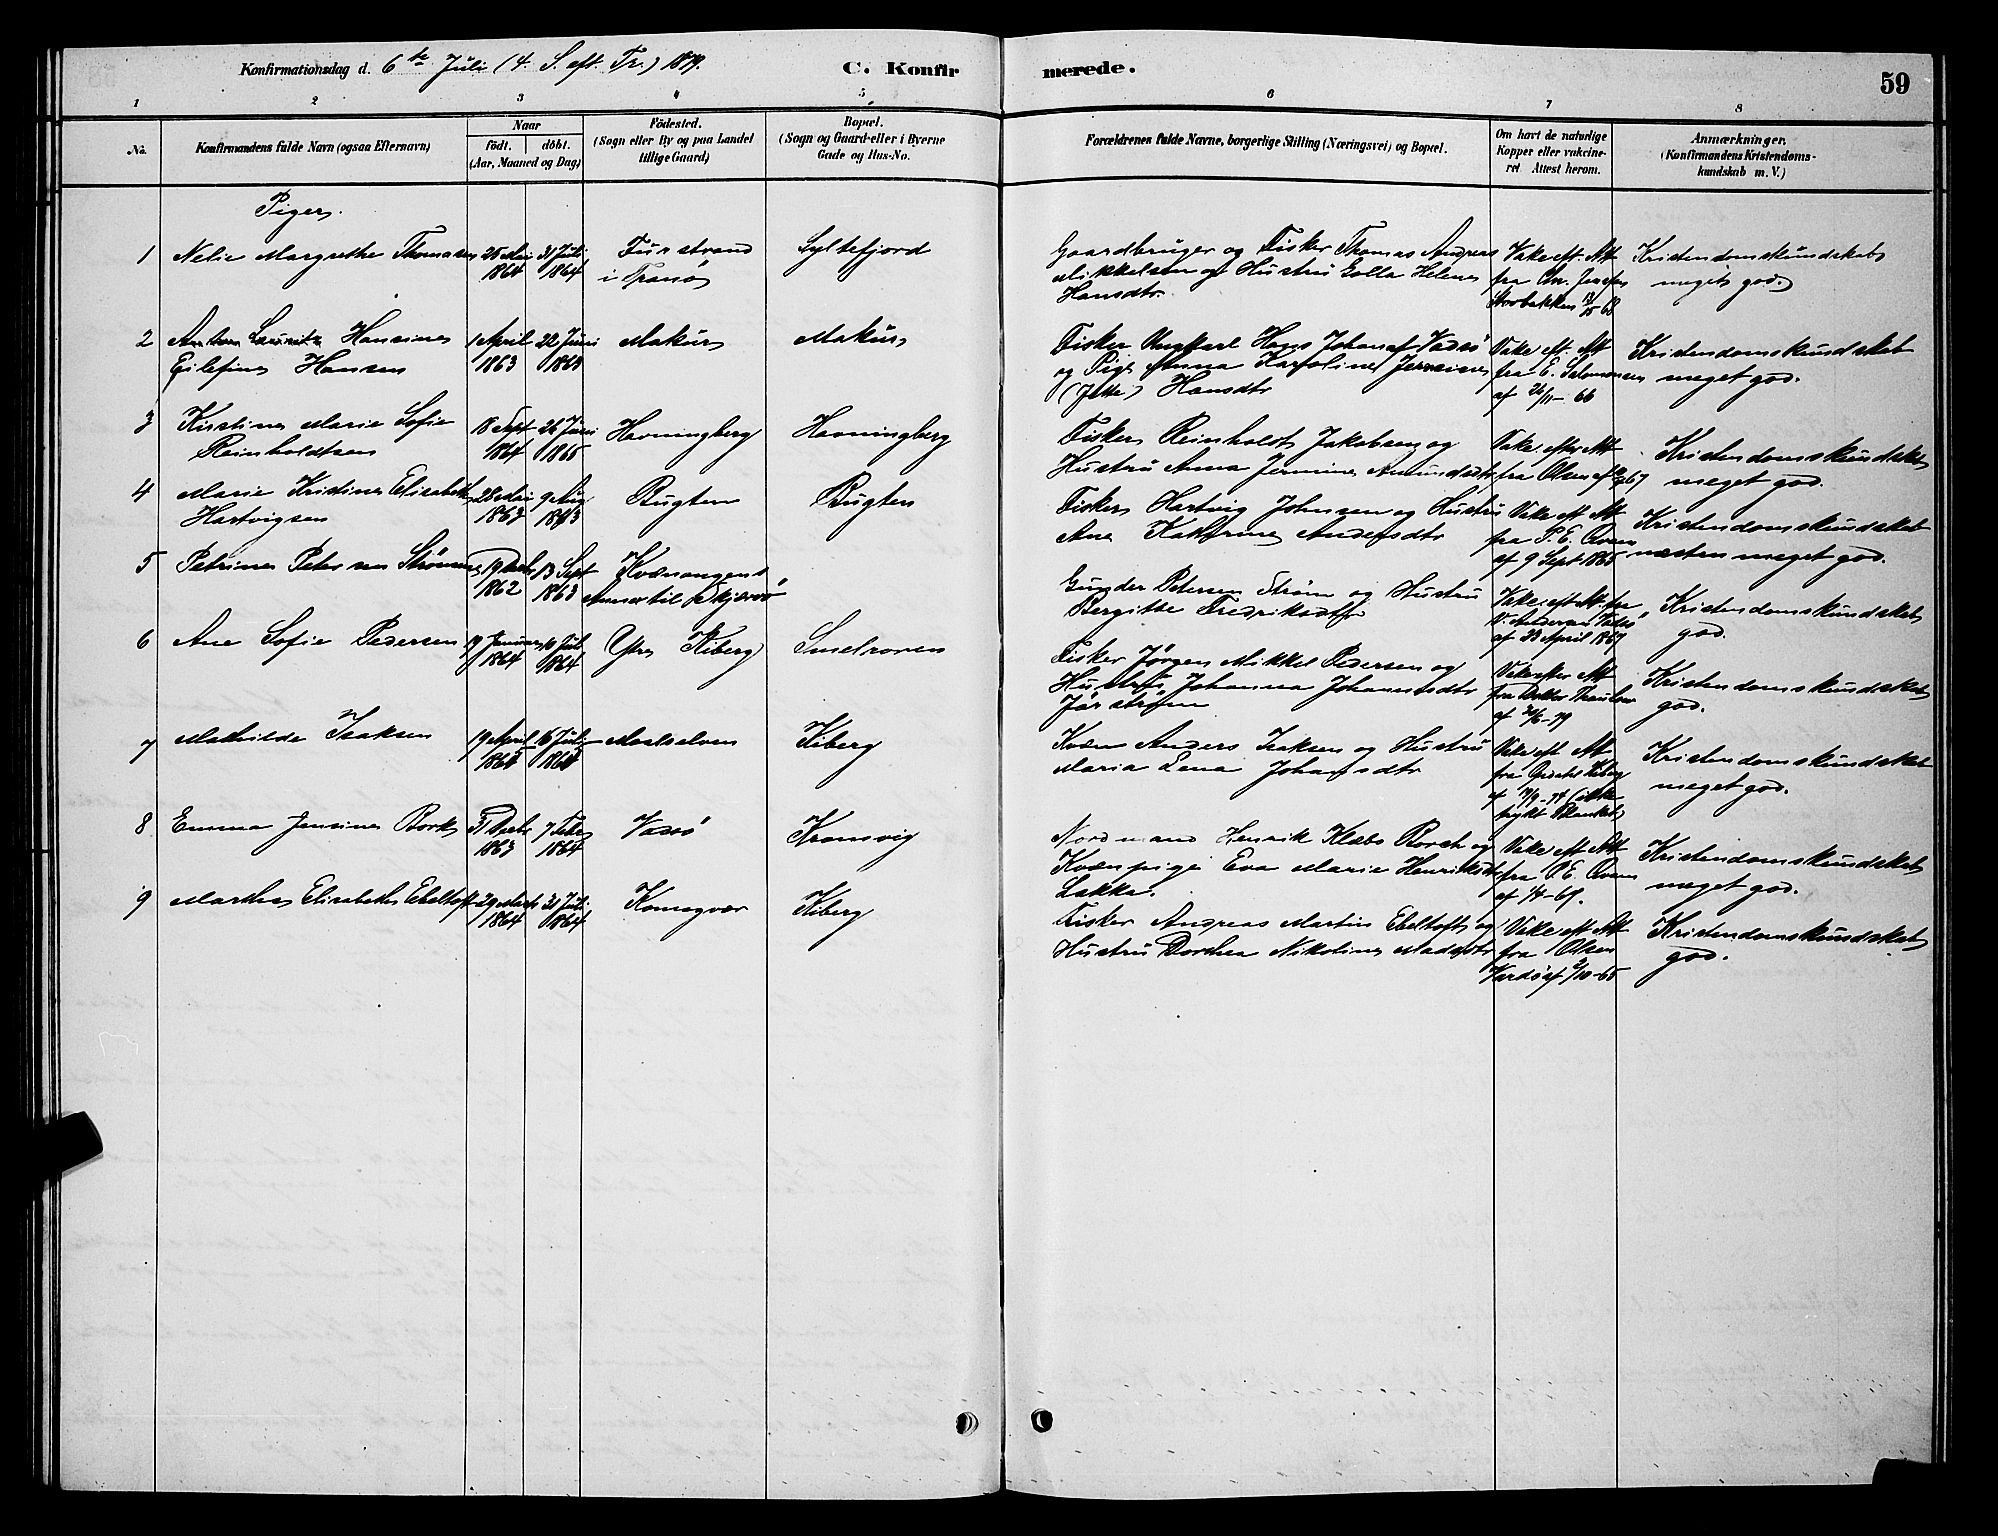 Konfirmationsdag d. 6te Juli (4. S. eft. Tr.) 1879.
C. Konfirmerede.
59
1 2 3 4 5 6 7 8
No.
Konfirmandens fulde Navn (ogsaa Efternavn)
Naar
födt. döbt.
(Aar, Maaned og Dag)
Födested.
(Sogn eller By og paa Landet
tillige Gaard)
Bopæl.
(Sogn og Gaard eller i Byerne
Gade og Hus-No.
Forældrenes fulde Navne, borgerlige Stilling (Næringsvei) og Bopæl.
Om havt de naturlige
Kopper eller vakcine-
ret Attest herom.
Anmærkninger.
(Konfirmandens Kristendoms-
kundskab m. V.)
Piger.
1 Nelie Margrethe Thomasen 26 Mai 1864 31 Juli 1864
Furstrand
i Tranö
Syltefjord
Gaardbruger og Fisker Thomas Andreas
Mikkelsen og Hustru Golla Helene
Hansdtr.
Vakc. eft. Att.
fra
Kristendomskundskab
meget god.
2 Hansine
Eilefine Hansen
1 April 1863 22 Juni 1863
Makur
Makur
Fisker Ungkarl Hans Johan af Vadsö
og Pige Anna Karoline
Hansdtr
Vakc. eft. Att
fra E. Salomonsen
af 26/11 66
Kristendomskundskab
meget god.
3 Kirstine Marie Sofie
Reinholdtsen
18 Sept 1864 26 Juni 1865
Havningberg
Havningberg
Fisker Reinholdt Jakobsen og
Hustru Anna Jermine Amundsdtr
Vakc. efter Att
fra Olsen af
Kristendomskundskab
meget god.
4 Marie Kristine Elisabeth
Hartvigsen
28 Mai 1863 9 Aug 1863
Bugten
Bugten
Fisker Hartvig Johnsen og Hustru
Ane Kathrine Andersdtr
Vakc. eft. Att
fra P. E.
af 9 Sept 1865
Kristendomskundskab
næsten meget god.
5 Petrine Petersen Strömme
19 Decbr 1862 13 Sept 1863
Kvænangen
Annex til Skjærvö
Gunder Petersen Ström og Hustru
Bergitte Fredriksdtr
Vakc. eft. Att. fra
Andersen Vadsö
af 23 April 1867
Kristendomskundskab
god.
6 Ane Sofie Pedersen
19 Januar 1864 10 Juli 1864
Ytre Kiberg
Smelroren
Fisker Jörgen Mikkel Pedersen og
Hustru Johanna Johannesdtr
Vakc. efter Att
fra Doktor
Kristendomskundskab
god.
7 Mathilde Isaksen
19 April 1864 16 Juli 1864
Maalselven
Kiberg
Kvæn Anders Isaksen og Hustru
Maria Lena Johansdtr
Vakc. eft. Att
fra Kiberg
(ikke
trykt Blanket)
Kristendomskundskab
meget god.
8 Emma Jensine Bork
31 Decbr 1863 7 Febr 1864
Vadsö
Kramvig
Nordmand Henrik Klæbo Borch og
Kvænpige Eva Marie Henriksdtr
Lakka.
Vakc. eft. Att
fra P. E.
af 1/4-69.
Kristendomskundskab
meget god.
9 Marthea Elisabeth Ebeltoft
29 Marts 1864 31 Juli 1864
Komagvær
Kiberg
Fisker Andreas Martin Ebeltoft og
Hustru Dorthea Nikoline Madsdtr
Vakc. eft. Att
fra Olsen
Vardö af 2/10-65
Kristendomskundskab
god.